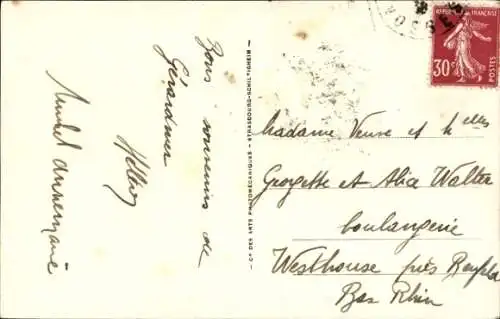 Bons souvenirs de
Gérardmer
Cie DES ARTS PHOTOMÉCANIQUES - STRASBOURG-SCHILTIGHEIM
VOSGES
RÉPUBLIQUE FRANÇAISE
30c
POSTES
Madame Veuve et Melles
Georgette et Alice Walter
boulangerie
Westhouse près Benfeld
Bas Rhin